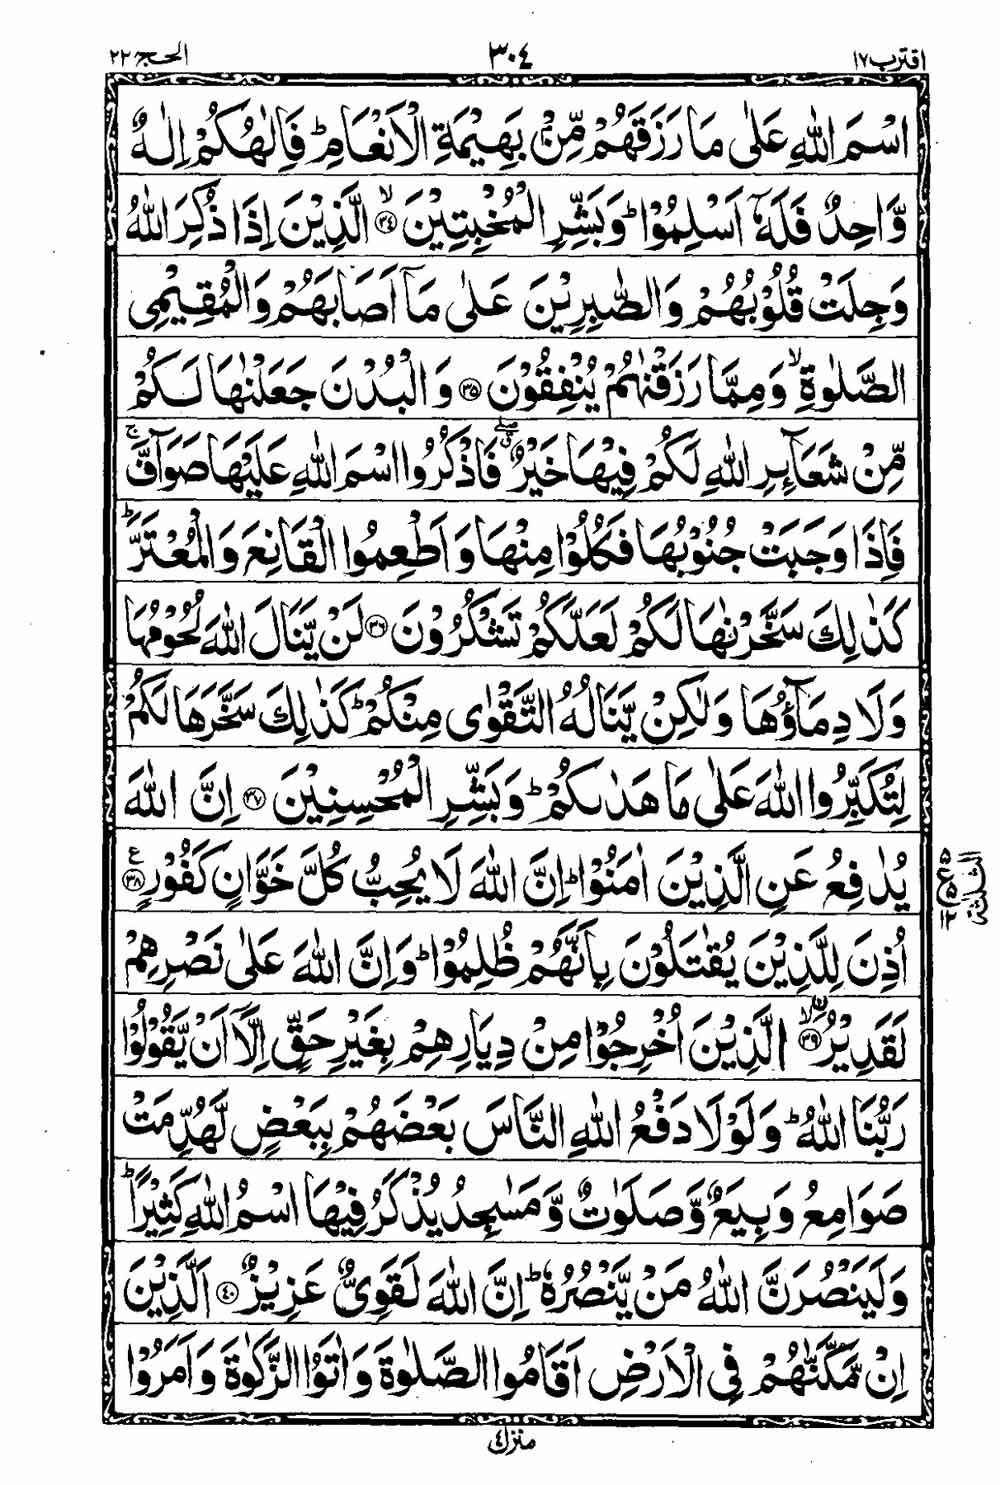 اقترب ١٧ ٣٠٤ الحج ٢٢
اسْمَ اللّٰهِ عَلٰى مَا رَزَقَهُمْ مِّنْۢ بَهِيْمَةِ الْاَنْعَامِ ؕ فَاِلٰهُكُمْ اِلٰهٌ
وَّاحِدٌ فَلَهٗۤ اَسْلِمُوْا ؕ وَبَشِّرِ الْمُخْبِتِيْنَ ۙ﴿٣٤﴾ الَّذِيْنَ اِذَا ذُكِرَ اللّٰهُ
وَجِلَتْ قُلُوْبُهُمْ وَالصّٰبِرِيْنَ عَلٰى مَاۤ اَصَابَهُمْ وَالْمُقِيْمِى
الصَّلٰوةِ ۙ وَمِمَّا رَزَقْنٰهُمْ يُنْفِقُوْنَ ﴿٣٥﴾ وَالْبُدْنَ جَعَلْنٰهَا لَكُمْ
مِّنْ شَعَآئِرِ اللّٰهِ لَكُمْ فِيْهَا خَيْرٌ ۖق فَاذْكُرُوا اسْمَ اللّٰهِ عَلَيْهَا صَوَآفَّ ۚ
فَاِذَا وَجَبَتْ جُنُوْبُهَا فَكُلُوْا مِنْهَا وَاَطْعِمُوا الْقَانِعَ وَالْمُعْتَرَّ ؕ
كَذٰلِكَ سَخَّرْنٰهَا لَكُمْ لَعَلَّكُمْ تَشْكُرُوْنَ ﴿٣٦﴾ لَنْ يَّنَالَ اللّٰهَ لُحُوْمُهَا
وَلَا دِمَآؤُهَا وَلٰكِنْ يَّنَالُهُ التَّقْوٰى مِنْكُمْ ؕ كَذٰلِكَ سَخَّرَهَا لَكُمْ
لِتُكَبِّرُوا اللّٰهَ عَلٰى مَا هَدٰىكُمْ ؕ وَبَشِّرِ الْمُحْسِنِيْنَ ﴿٣٧﴾ اِنَّ اللّٰهَ
يُدٰفِعُ عَنِ الَّذِيْنَ اٰمَنُوْا ؕ اِنَّ اللّٰهَ لَا يُحِبُّ كُلَّ خَوَّانٍ كَفُوْرٍ ﴿٣٨﴾ ع
اُذِنَ لِلَّذِيْنَ يُقٰتَلُوْنَ بِاَنَّهُمْ ظُلِمُوْا ؕ وَاِنَّ اللّٰهَ عَلٰى نَصْرِهِمْ
لَقَدِيْرُ ۨ ۙ﴿٣٩﴾ الَّذِيْنَ اُخْرِجُوْا مِنْ دِيَارِهِمْ بِغَيْرِ حَقٍّ اِلَّاۤ اَنْ يَّقُوْلُوْا
رَبُّنَا اللّٰهُ ؕ وَلَوْلَا دَفْعُ اللّٰهِ النَّاسَ بَعْضَهُمْ بِبَعْضٍ لَّهُدِّمَتْ
صَوَامِعُ وَبِيَعٌ وَّصَلَوٰتٌ وَّمَسٰجِدُ يُذْكَرُ فِيْهَا اسْمُ اللّٰهِ كَثِيْرًا ؕ
وَلَيَنْصُرَنَّ اللّٰهُ مَنْ يَّنْصُرُهٗ ؕ اِنَّ اللّٰهَ لَقَوِىٌّ عَزِيْزٌ ﴿٤٠﴾ اَلَّذِيْنَ
اِنْ مَّكَّنّٰهُمْ فِى الْاَرْضِ اَقَامُوا الصَّلٰوةَ وَاٰتَوُا الزَّكٰوةَ وَاَمَرُوْا
منزل ٤